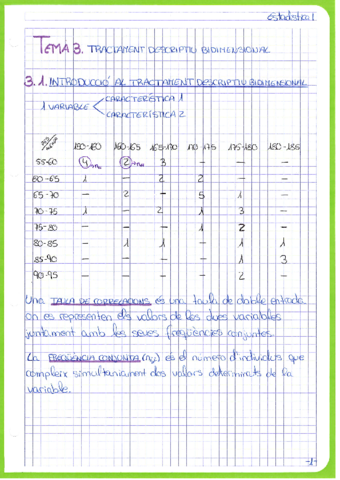 estadística I
TEMA 3. TRACTAMENT DESCRIPTIU BIDIMENSIONAL
3.1. INTRODUCCIÓ AL TRACTAMENT DESCRIPTIU BIDIMENSIONAL
1 VARIABLE CARACTERÍSTICA 1
CARACTERÍSTICA 2
150-160 160-165 165-170 170-175 175-180 180-185
55-60 4 2 3 - - -
60-65 1 - 2 2 - -
65-70 - 2 - 5 1 -
70-75 1 - 2 1 3 -
75-80 - - - 1 2 -
80-85 - 1 1 - 1 1
85-90 - - - - 1 3
90-95 - - - - 2 -
Una TAULA DE CORRELACIONS és una taula de doble entrada
on es representen els valors de les dues variables
juntament amb les seves freqüències conjuntes.
La FREQÜÈNCIA CONJUNTA (nij) és el número d'individus que
compleix simultàniament dos valors determinats de la
variable.
-1-